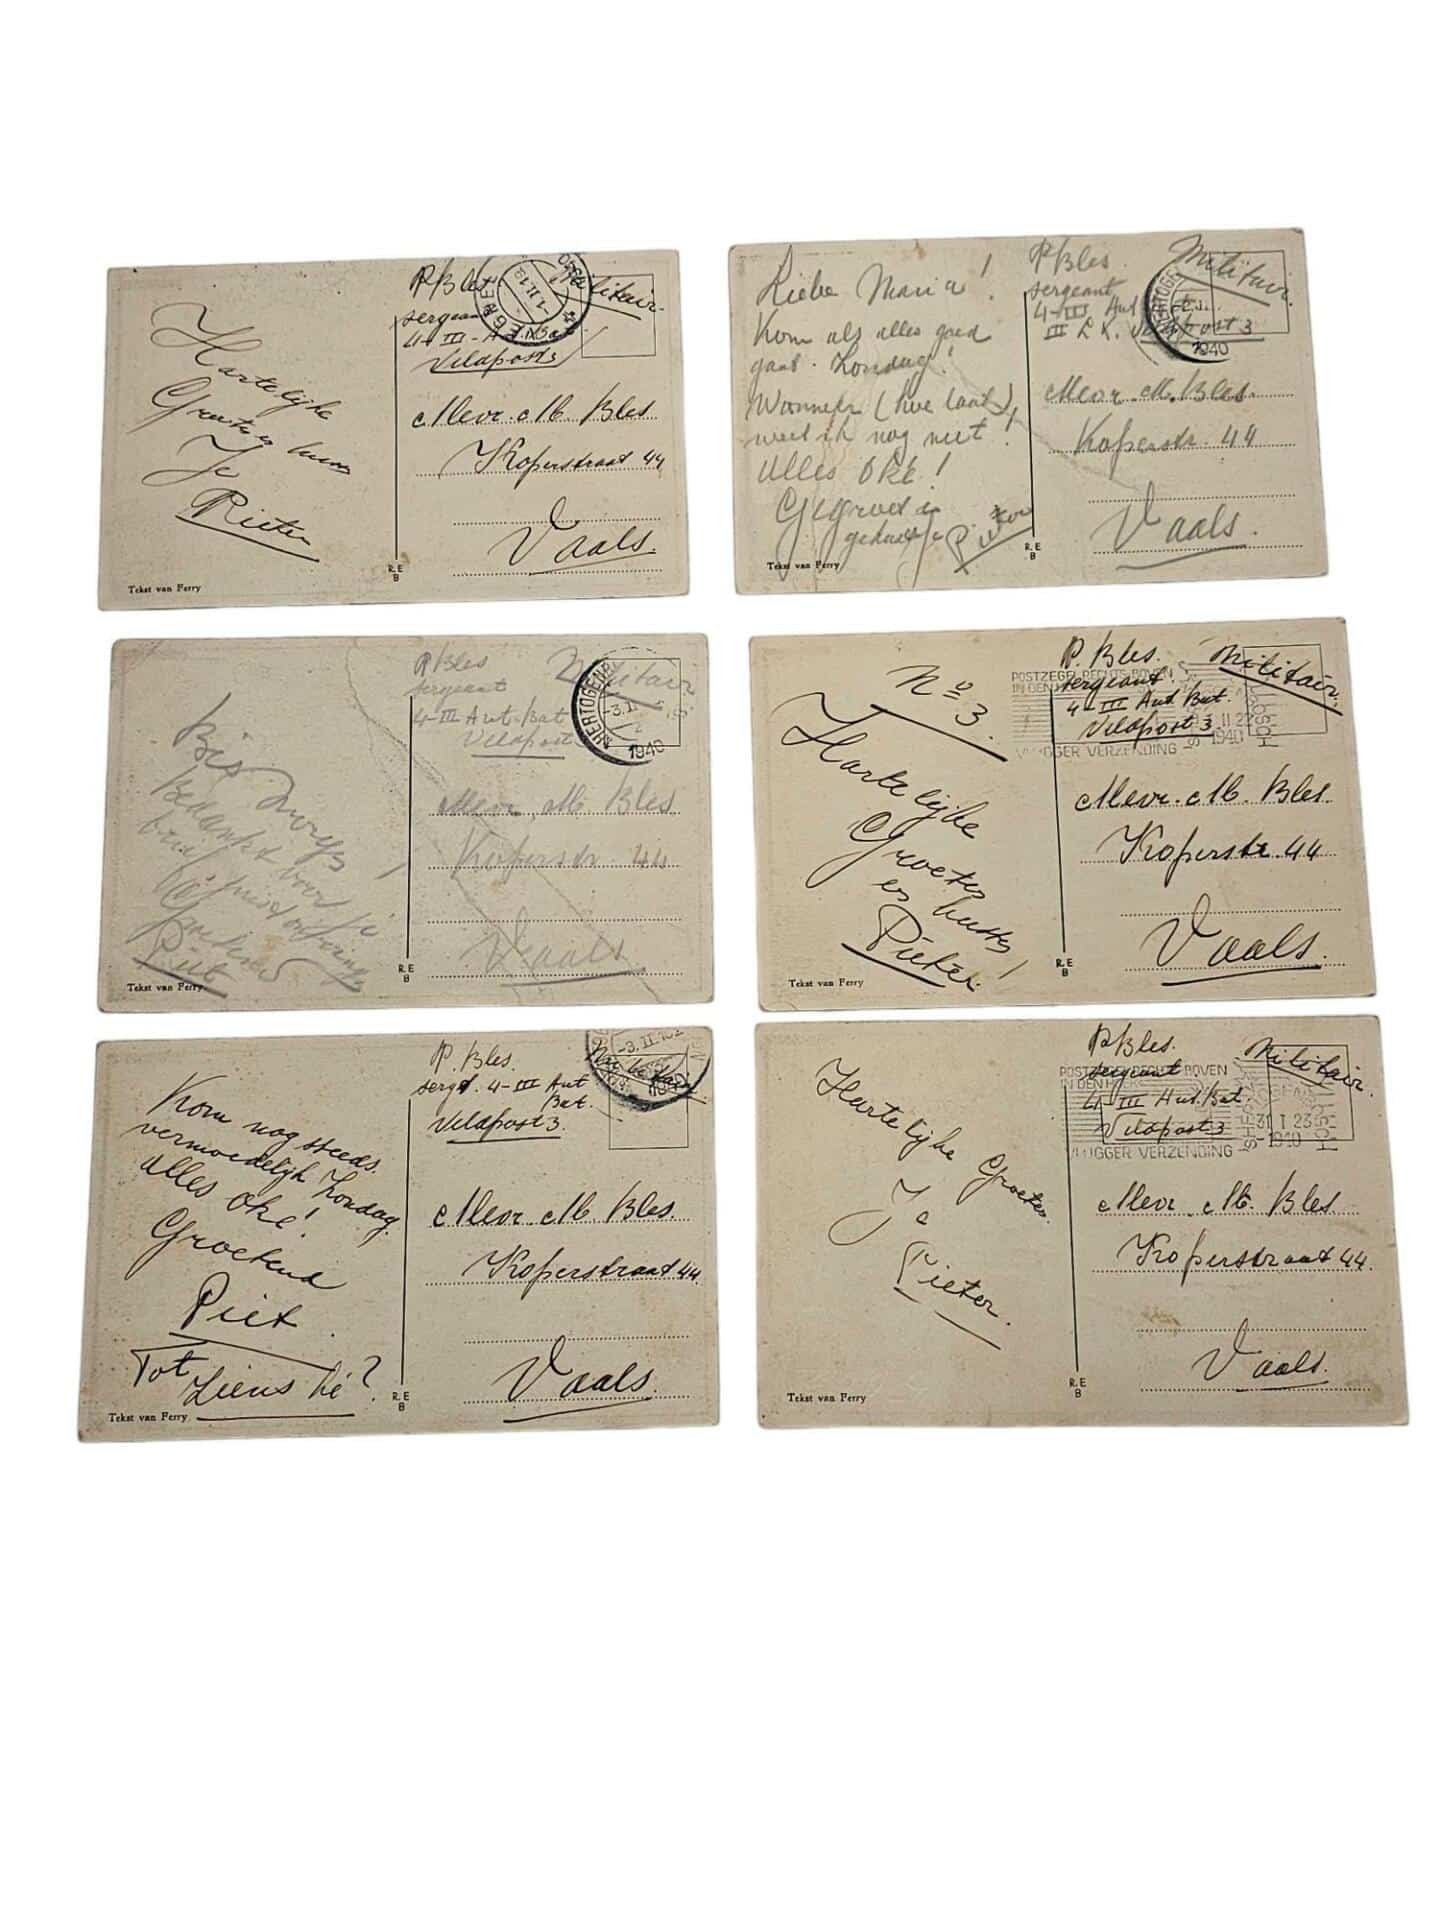 P. Bles
Militair.
sergeant
4-III-Aut. Bat.
Veldpost 3
1.II.18
1940
Hartelijke
Groeten
Je
Pieter
Mevr. M. Bles
Koperstraat 44
Vaals.
R.E
B
Tekst van Ferry
Liebe Maria!
Kom als alles goed
gaat. Zondag!
Wanneer (hoe laat),
weet ik nog niet!
Alles Oké!
Gegroet en
Pieter
P. Bles.
Militair.
sergeant
4-III Aut
III L.K. Veldpost 3
HERTOGE
1940
Mevr. M. Bles.
Koperstr. 44
Vaals.
R.E
B
Tekst van Ferry
P. Bles
Militair
sergeant
4-III Aut. Bat
Veldpost
HERTOGENB
-3.II
1940
Bedankt voor je
brief
Piet
Mevr. M. Bles.
Koperstr 44
Vaals
R.E
B
Tekst van Ferry
No 3.
Hartelijke
Groeten
en
Pieter.
P. Bles.
Militair.
sergeant.
4-III Aut. Bat.
Veldpost 3
POSTZEGEL RECHTS BOVEN
IN DEN
VLUGGER VERZENDING
II 22
1940
Mevr. M. Bles.
Koperstr. 44
Vaals.
R.E
B
Tekst van Ferry
P. Bles.
Militair
sergt. 4-III Aut
Bat.
Veldpost 3.
-3.II
Kom nog steeds
vermoedelijk Zondag.
Alles Oké!
Groetend
Piet.
Tot Ziens hé?
Mevr. M. Bles.
Koperstraat 44.
Vaals.
R.E
B
Tekst van Ferry
P. Bles.
Militair.
sergeant
4-III Aut. Bat.
Veldpost 3
POSTZEGEL RECHTS BOVEN
IN DEN
VLUGGER VERZENDING
31 I 23
1940
Hartelijke Groeten.
Je
Pieter.
Mevr. M. Bles.
Koperstraat 44.
Vaals.
R.E
B
Tekst van Ferry